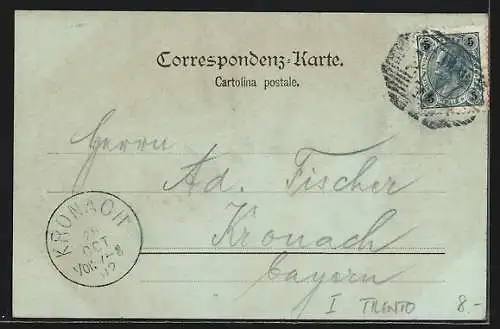 Correspondenz-Karte.
Cartolina postale.
5 5
Herrn
Ad. Fischer
Kronach
Bayern
KRONACH
OCT
VOR. 7-8
02
I TRENTO 8.-